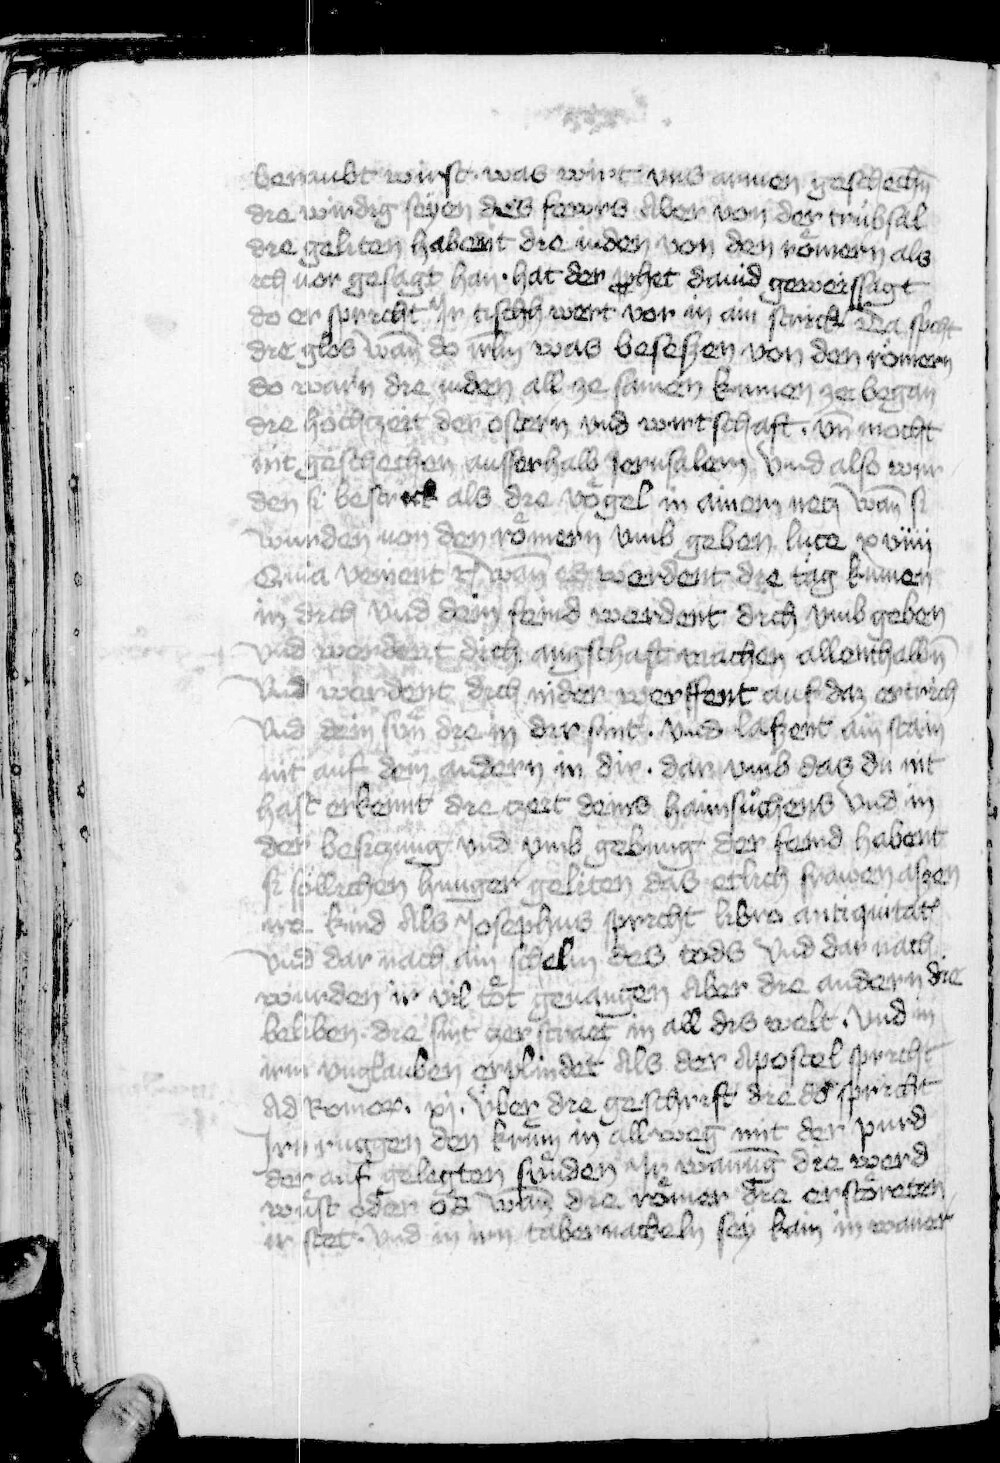 beraubt wirst. was wirt uns armen geschechn̄
die wirdig seyen des fewrs Aber von der trübsal
die geliten habent die iuden von den römern als
ich vor gesagt han. hat der ꝓphet dauid geweissagt
do er spricht Ir tisch wert vor in ain strick Da spcht
die glos wan̄ do irlm̄ was besessen von den römern
do warn die iuden all ze samen kumen ze began
die hochzeit der ostern vnd wirtschaft. vn̄ mocht
nit geschechen ausserhalb Jerusalem Vnd also wur
den si bestrickt als die vögel in ainem netz wan̄ si
wurden von den römern vmb geben luce xviiii
Quia venient wan̄ es werdent die tag kumen
in dich vnd dein feind werdent dich vmb geben
vnd werdent dich angsthaft machen allenthalbn̄
Vnd werdent dich nider werffent auf daz ertrich
Vnd dein sün die in dir sint. Vnd lassent ain stain
nit auf dem andern in dir. dar vmb das du nit
hast erkennt die zeit deins haimsüchens Vnd in
der besiczung vnd vmb gebung der feind habent
si söllichen hunger geliten das etlich frawen assen
ire kind Als Josephus spricht libro antiquitat
vnd dar nach ain schelm des tods Vnd dar nach
wurden ir vil töt geuangen Aber die andern die
beliben. die sint zerstraet in all dis welt. Vnd in
irm vnglauben erplindet Als der Apostel spricht
Ad Romor. xj. Über die geschrift die do spricht
Irn ruggen den krum̄ in allweg mit der purd
der auf gelegten sünden Ir wanung die werd
wüst oder öd Wan̄ die römer die erstöreten
ir stet. Vnd in irn tabernackeln sey kain in waner